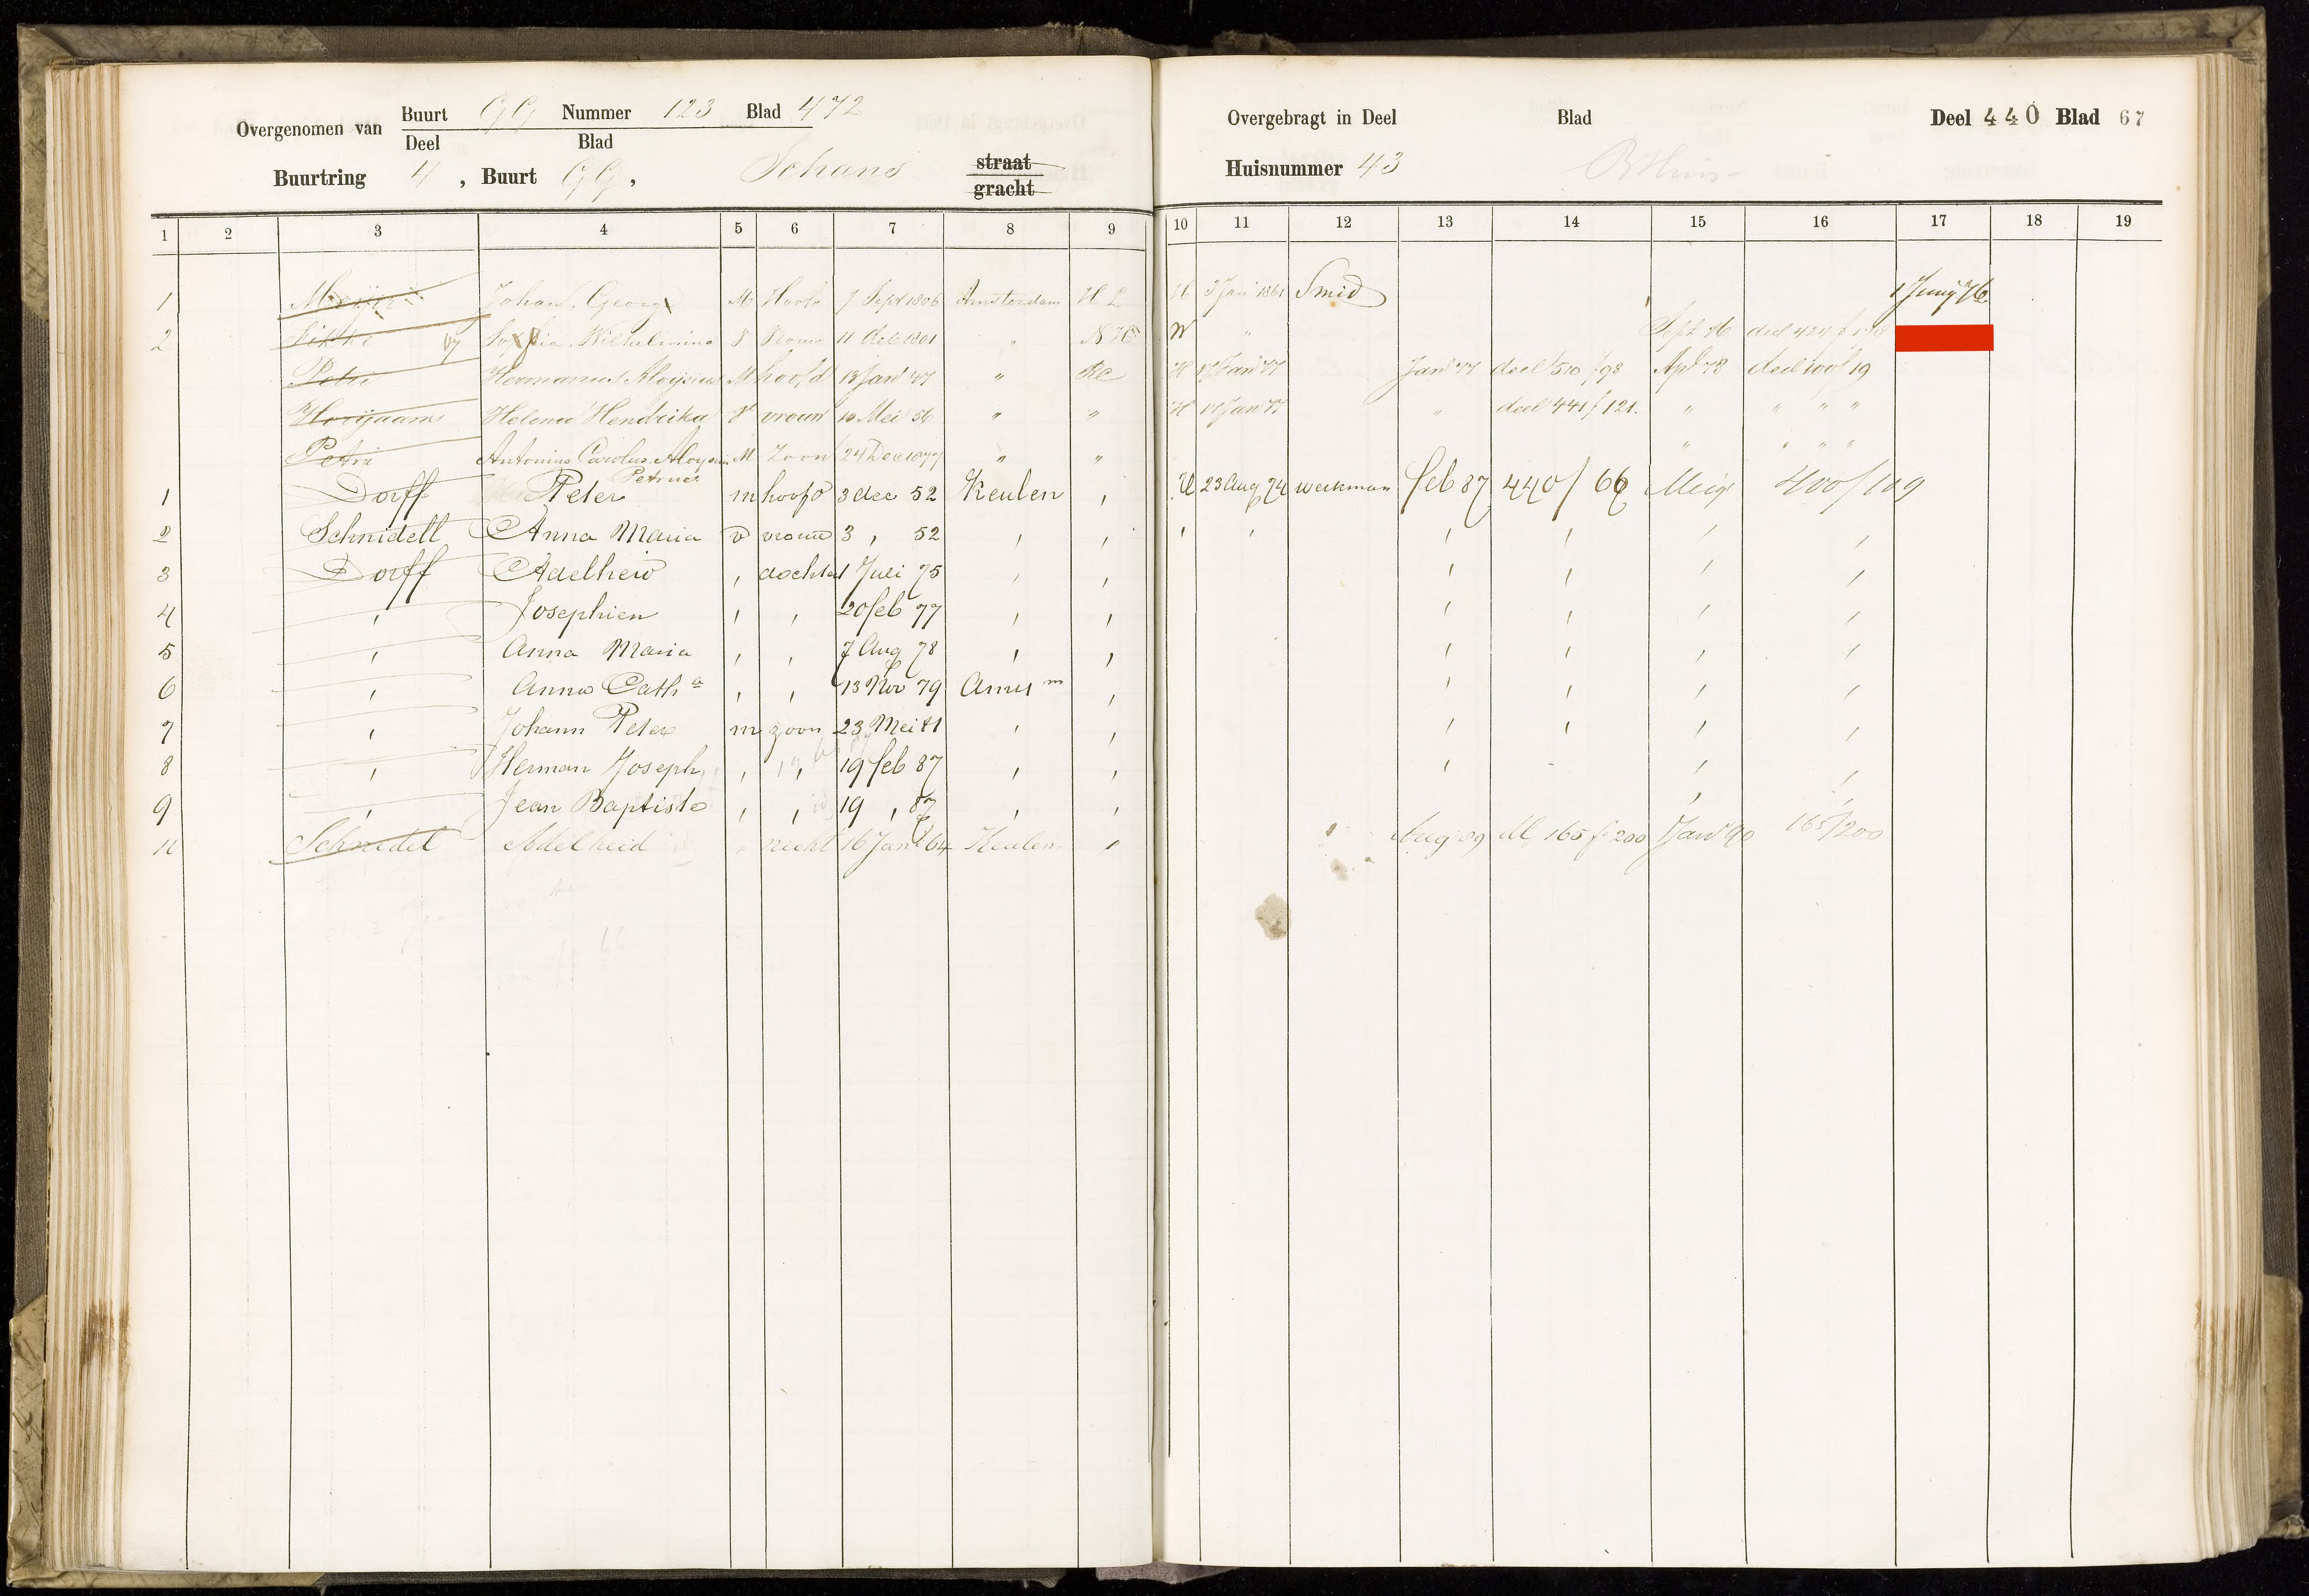 Overgenomen van Buurt GG Nummer 123 Blad 472
Deel Blad
Buurtring 4, Buurt GG, Schans straat
gracht
1 2 3 4 5 6 7 8 9
1 Johan Georg M Hoofd 7 Sept 1806 Amsterdam H L
2 Wilhelmina V Vrouw 11 1801 " N H
Petri Hermanus Aloysius M hoofd 13 Jan 47 " RC
Helena Hendrika V vrouw 10 Mei 56 " "
Petri Antonius Carolus Aloysius M Zoon 24 Dec 1877 " "
Petrus
1 Dorff Peter m hoofd 3 dec 52 Keulen ,
2 Schnidell Anna Maria v vrouw 3 , 52 , ,
3 Dorff Adelheid , dochter 1 Juli 75 , ,
4 , Josephien , , 20 feb 77 , ,
5 , Anna Maria , , 7 Aug 78 , ,
6 , Anna Catha , , 13 Nov 79 Amstm ,
7 , Johann Peter m zoon 23 Mei 81 , ,
8 , Herman Joseph , , 19 feb 87 , ,
9 , Jean Baptiste , , 19 , 87 , ,
Schnedel Adelheid " nicht 16 Jan 64 Keulen "
Overgebragt in Deel Blad Deel 440 Blad 67
Huisnummer 43
10 11 12 13 14 15 16 17 18 19
H 3 Jan 1861 Smid 1 Junij 76
W " Sept 76 deel 424 f
H 17 Jan 77 Jan 77 deel 510 f 98 Apl 78 deel 19
H 17 Jan 77 " deel 441 f 121. " " " "
" " " "
H 23 Aug 74 werkman feb 87 440/66 Mei 400/109
, , , , , ,
, , , ,
, , , ,
, , , ,
, , , ,
, , , ,
, , ,
, ,
Aug 89 dl 165 f 200 Jan 90 165/200